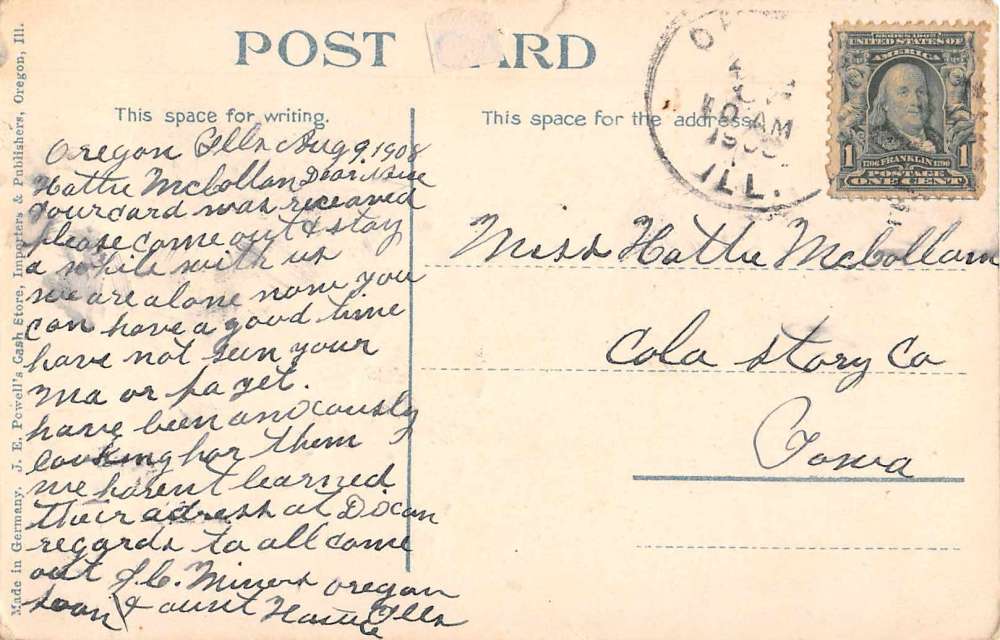 POST CARD
This space for writing.
This space for the address.
Oregon Ills Aug 9, 1908
Hattie McCollam Dear Niece
your card was receaved
please come out & stay
a while with us
we are alone now you
can have a good time
have not seen your
ma or pa yet.
have been anocously
looking for them
we havent learned
their adress at Dixon
regards to all come
out soon
J.C. Miners Oregon
& aunt Ills
Miss Hattie McCollam
Colo Story Co
Iowa
SERIES 1902
UNITED STATES OF
AMERICA
1706 FRANKLIN 1790
1 1
POSTAGE
ONE CENT
AM
ILL.
Made in Germany. J. E. Powell's Cash Store, Importers & Publishers, Oregon, Ill.